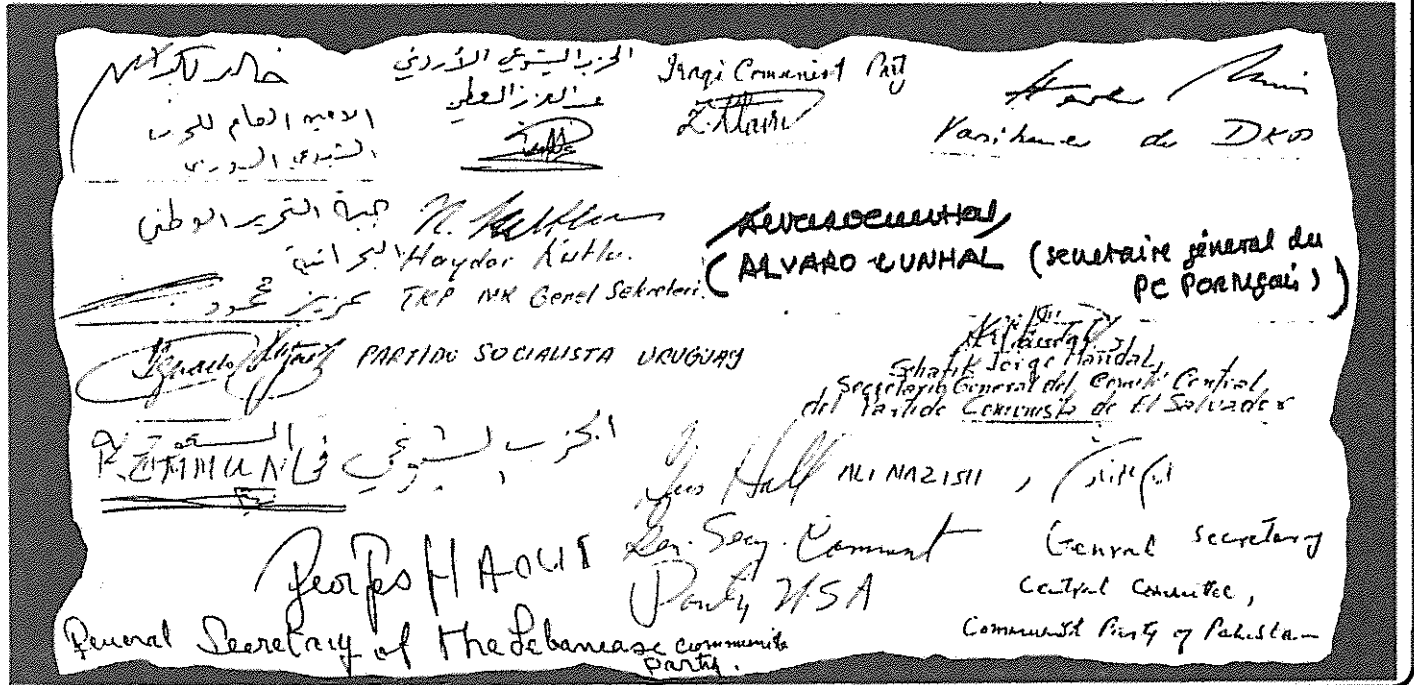 خالد بكداش
الامين العام للحزب
الشيوعي السوري
الحزب الشيوعي الأردني
Iraqi Comunist Party
du DKP
جبهة التحرير الوطني
البحرانية
عزيز محمود
Haydar Kutlu.
TKP MK Genel Sekreteri.
ALVAROCUNHAL
(ALVARO CUNHAL (secretaire général du
PC PORtugais)
PARTIDO SOCIALISTA URUGUAY
Schafik Jorge Handal,
Secretario General del Comité Central
del Partido Comunista de El Salvador
الحزب الشيوعي في السعودية
Gus Hall
Gen. Secy. Communist
Party USA
ALI NAZISH,
General Secretary
Central Committee,
Communist Party of Pakistan
Georges HAOUI
General Secretary of the Lebanease communite
party.